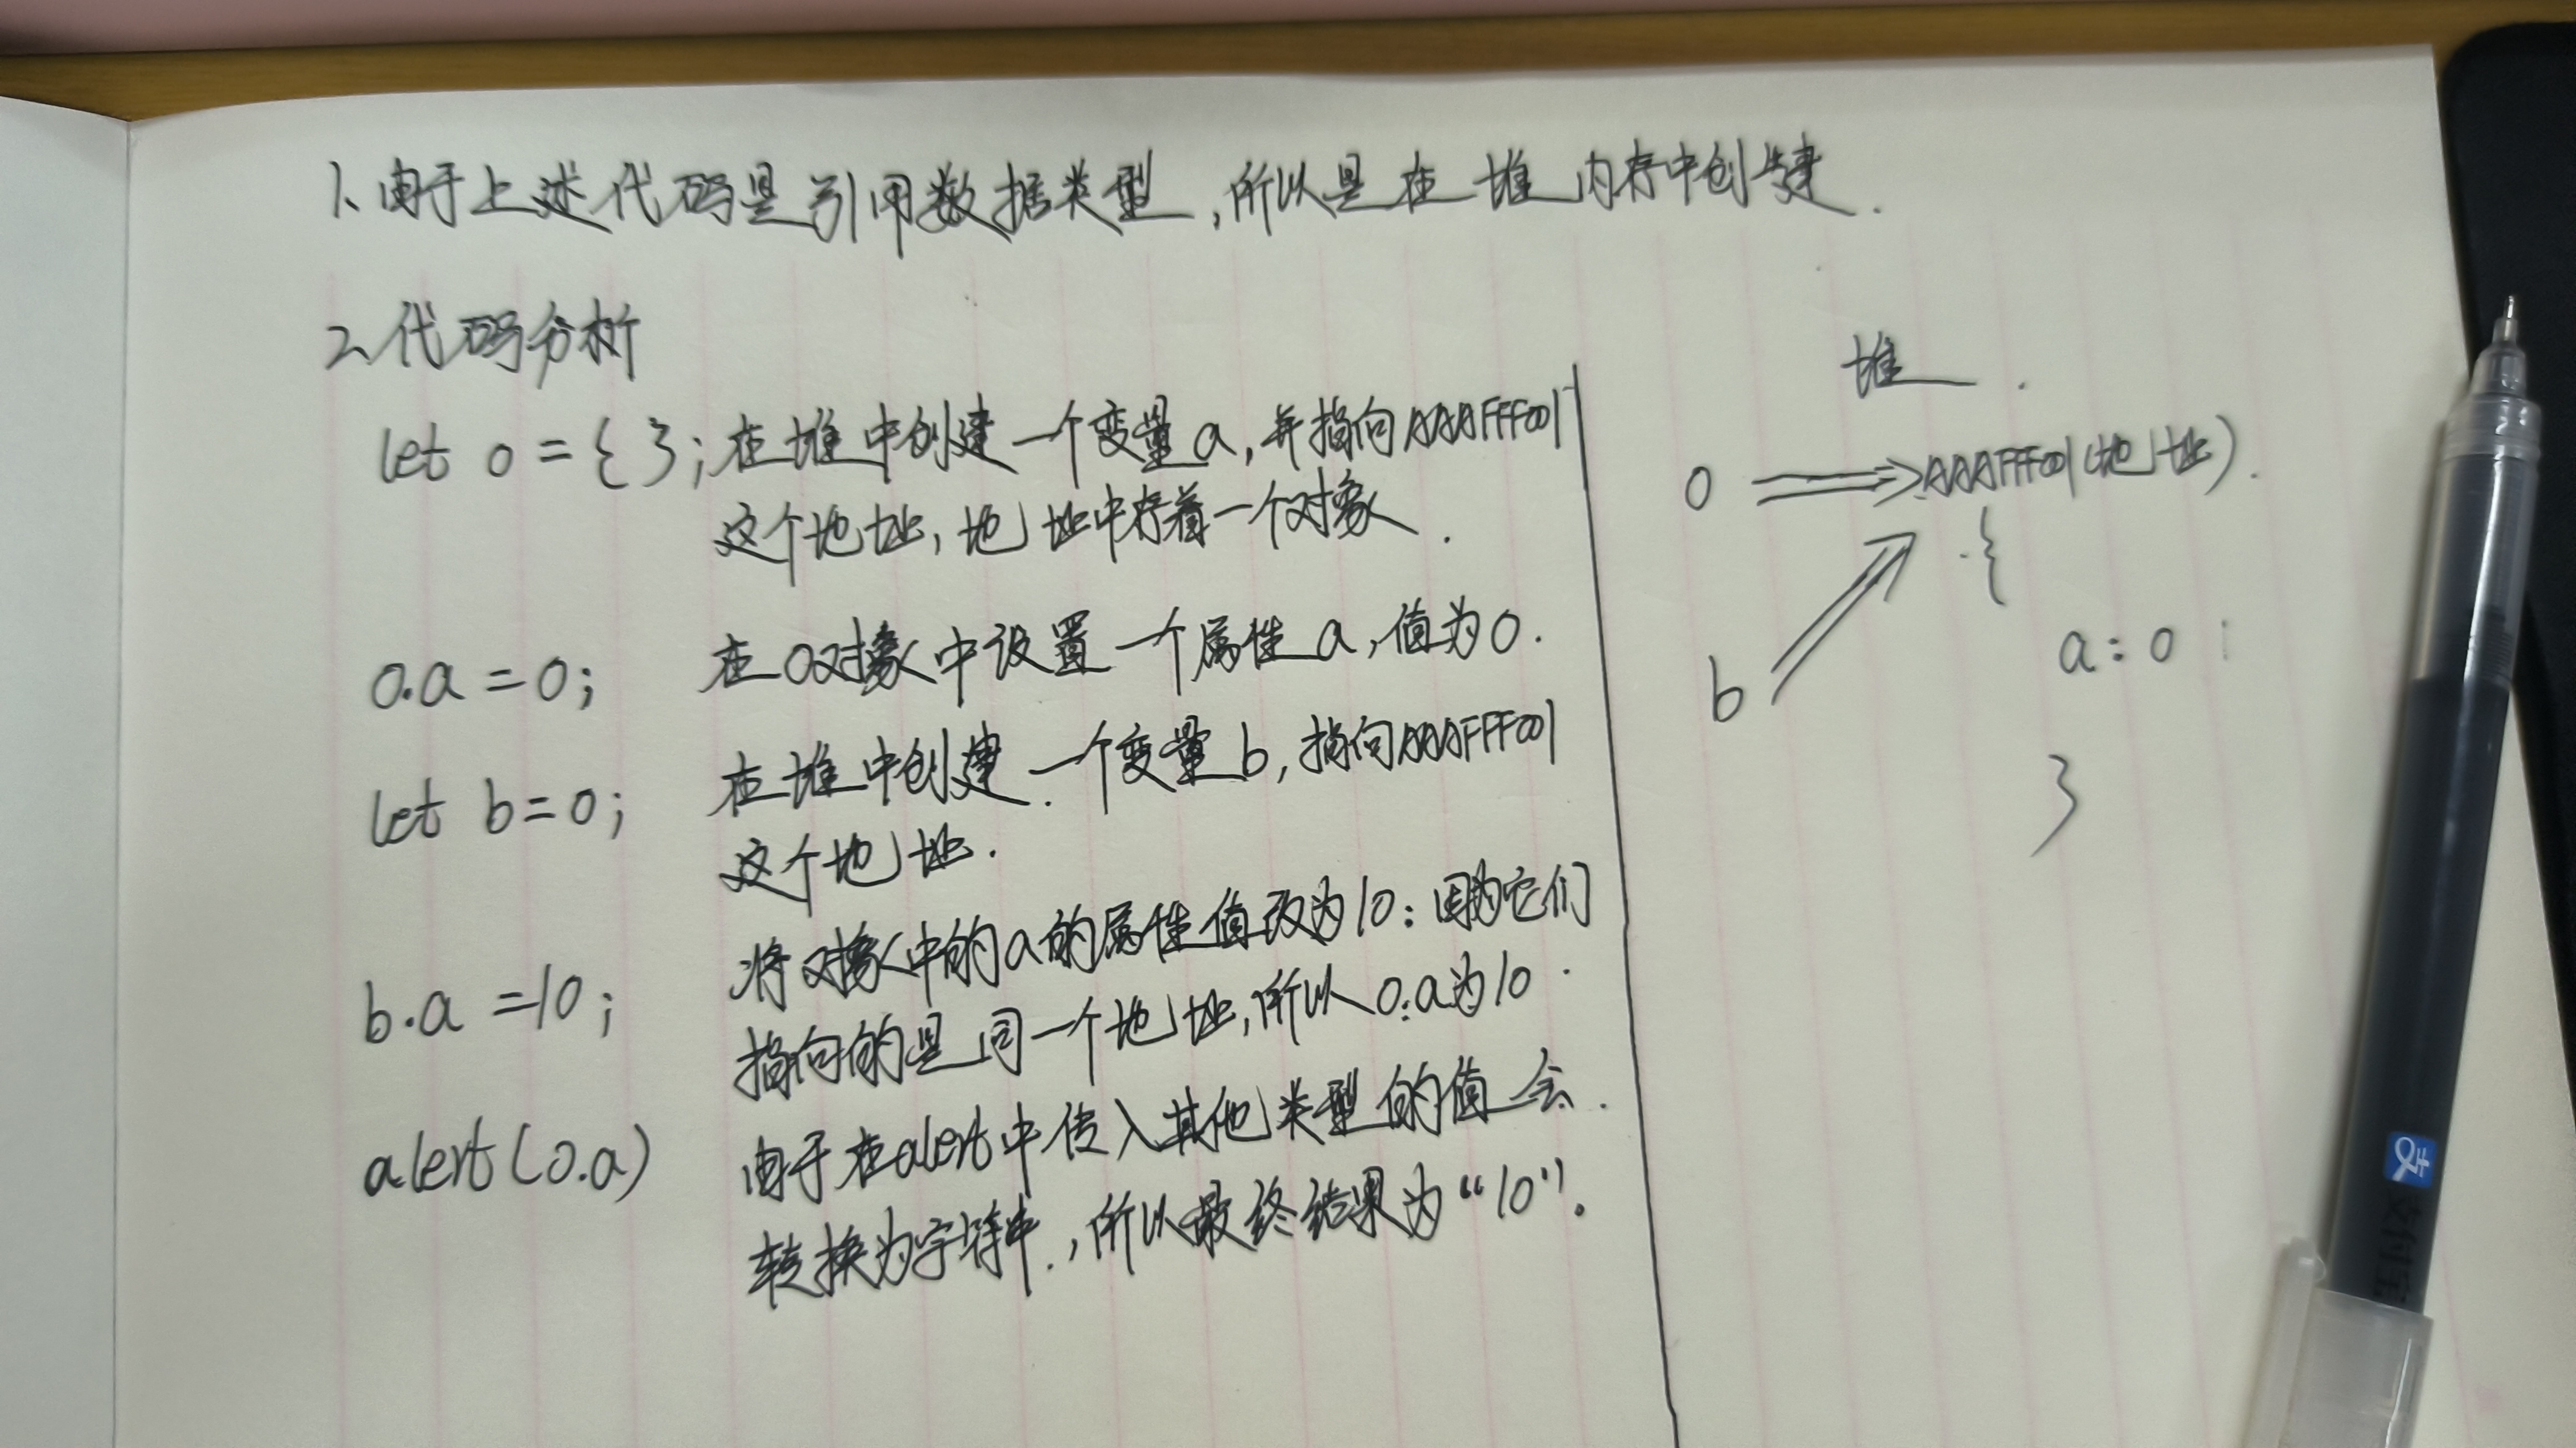 1、由于上述代码是引用数据类型,所以是在堆内存中创建.
2、代码分析
let o = { }; 在堆中创建一个变量a,并指向AAAFFF001
这个地址,地址中存着一个对象.
o.a = 0; 在o对象中设置一个属性a,值为0.
let b = o; 在堆中创建一个变量b,指向AAAFFF001
这个地址.
将对象中的a的属性值改为10:因为它们
b.a = 10; 指向的是同一个地址,所以o.a为10.
alert(o.a) 由于在alert中传入其他类型的值会
转换为字符串,所以最终结果为“10”.
堆
o ⇒ AAAFFF001(地址).
{
a:0
b
}
支付宝